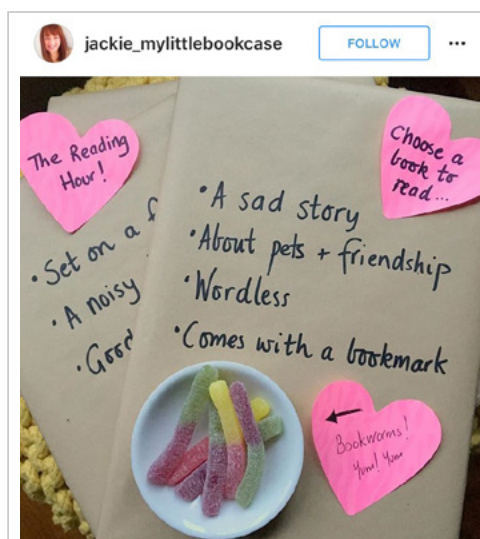 jackie_mylittlebookcase
FOLLOW
The Reading
Hour!
Choose a
book to
read...
• Set on a f
• A noisy
• Good
• A sad story
• About pets + friendship
• Wordless
• Comes with a bookmark
Bookworms!
Yum! Yum